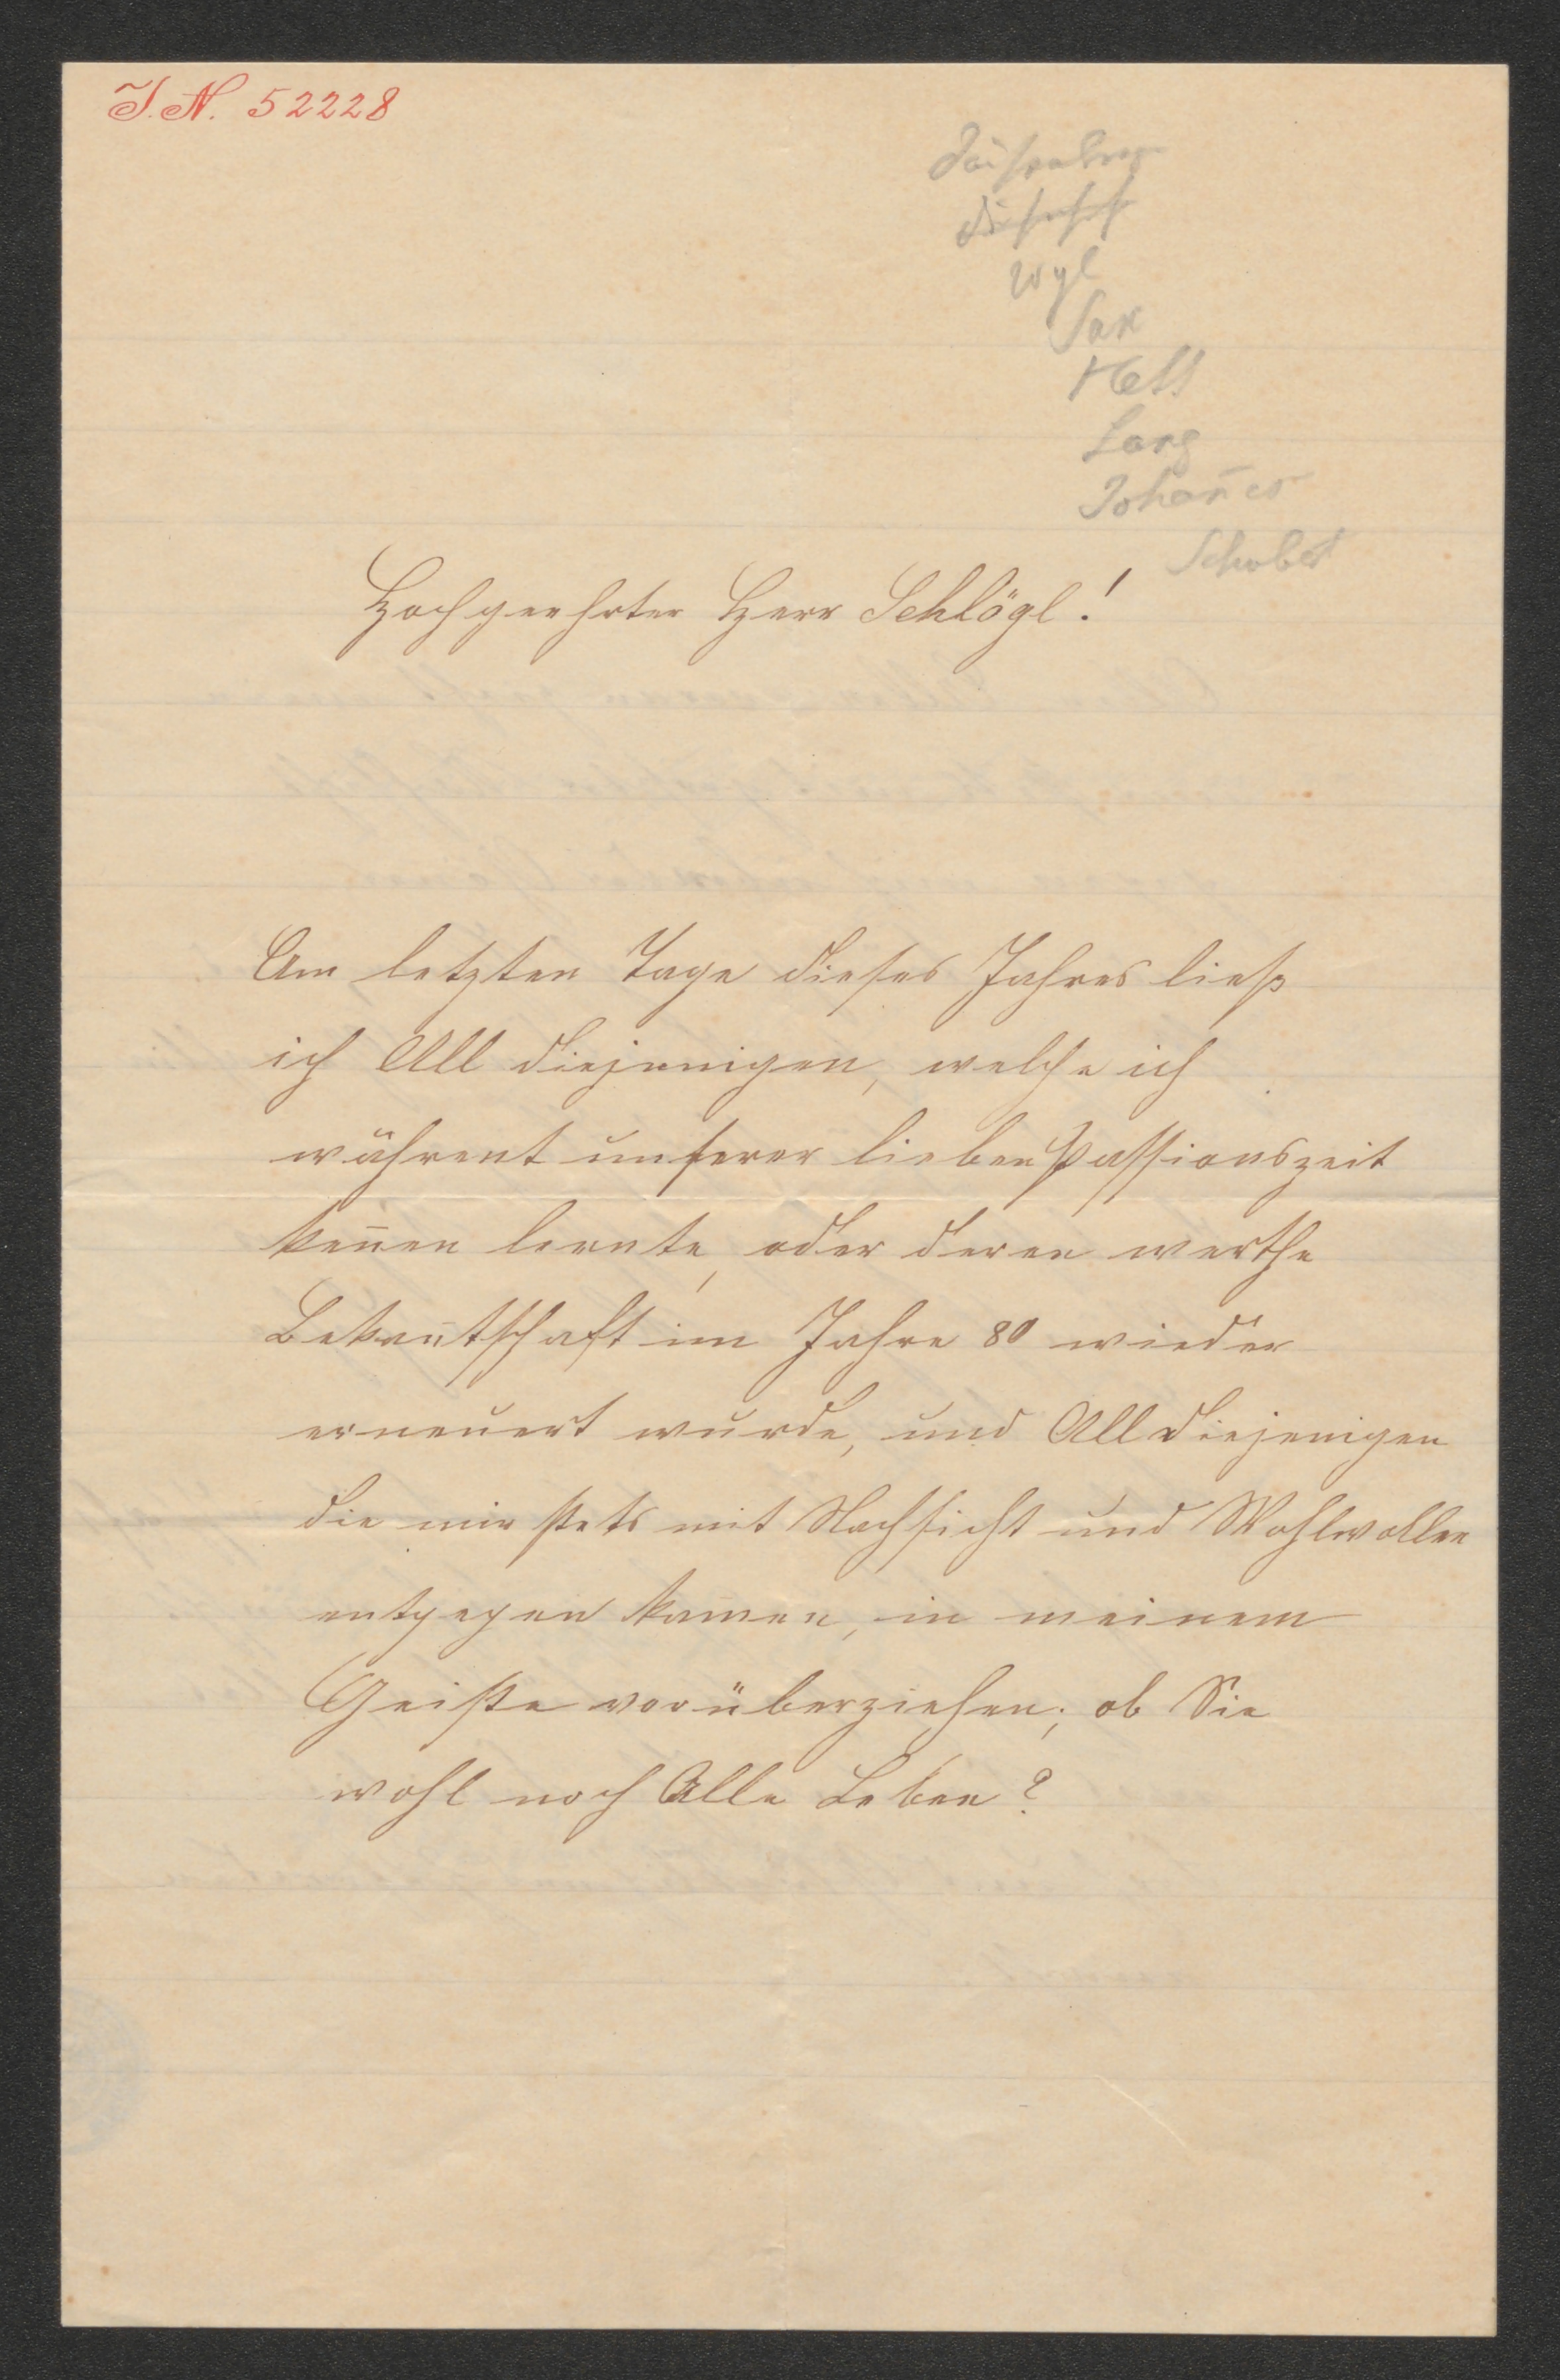 I.N. 52228
Wyl
Sax
Hell
Lang
Johan̅es
Schober
Hochgeehrter Herr Schlögl!
Am letzten Tage dieses Jahres ließ
ich All diejenigen, welche ich
währent unserer lieben Passionszeit
ken̅en lernte, oder deren werthe
Bekan̅tschaft im Jahre 80 wieder
erneuert wurde, und All diejenigen
die mir stets mit Nachsicht und Wohlwollen
entgegen kamen, in meinem
Geiste vorüberziehen; ob Sie
wohl noch Alle Leben?